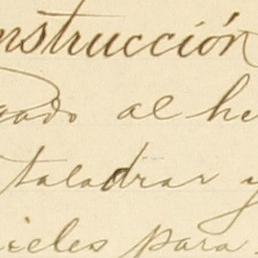 nstrucción
gado al he
taladrar y
ieles para